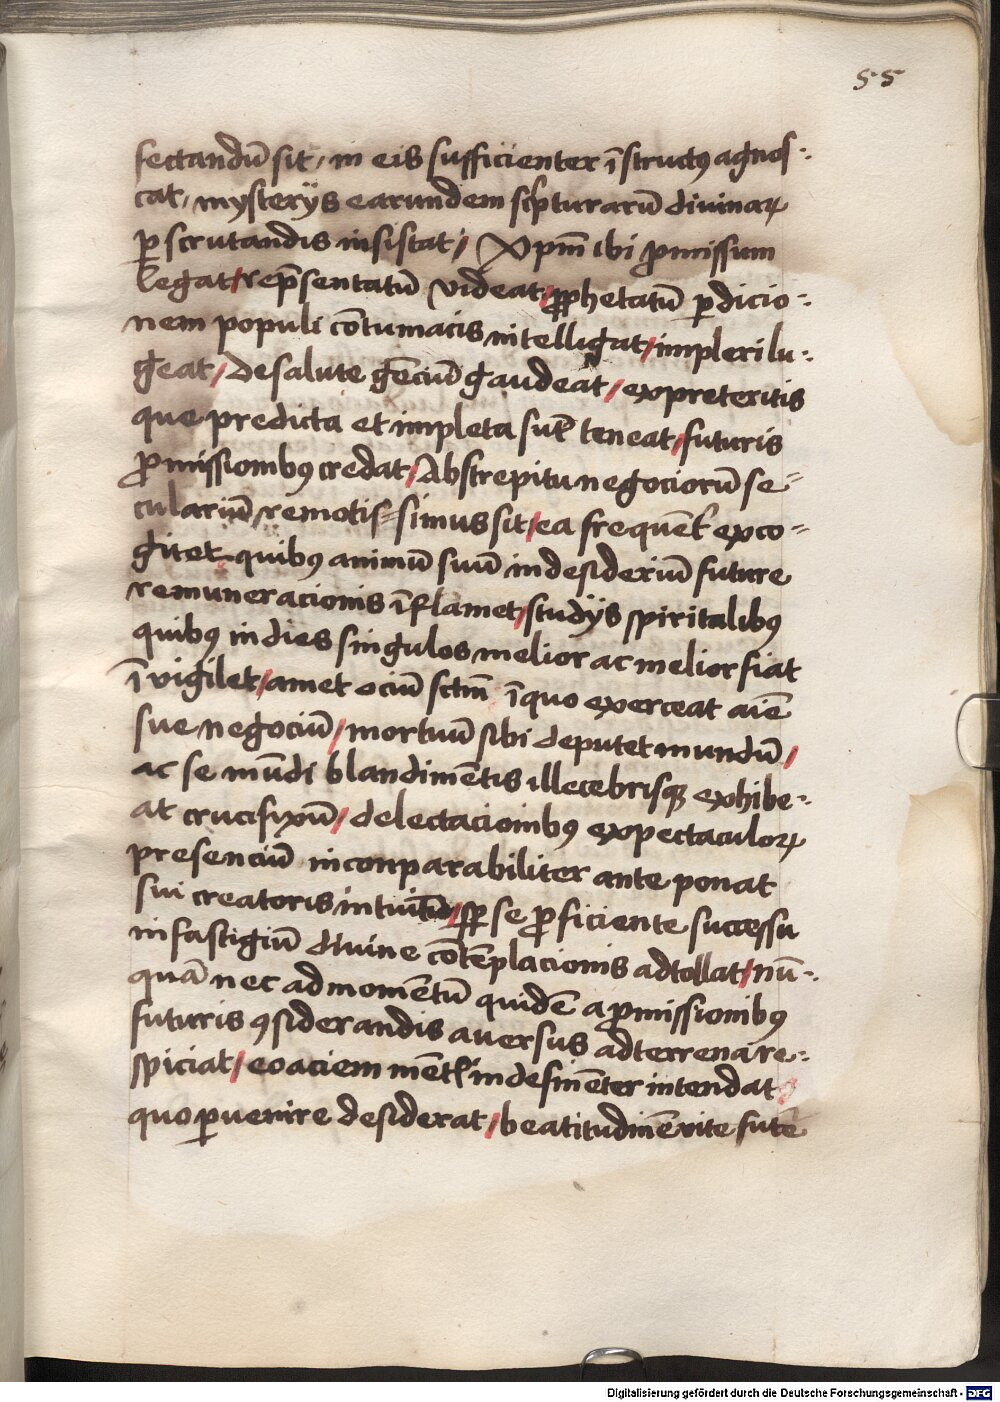 55
fectandū sit, in eis sufficienter īstructꝰ agnos⸗
cat, mysterijs earundem sc̄pturarū diuinaꝝ
ꝑscrutandis insistat / Xp̄m ibi ꝓmissum
legat / rep̄sentatū videat / ꝓphetatū ꝑdicio⸗
nem populi cōtumacis intelligat / impleri lu⸗
geat / De salute gēciū gaudeat / ex preteritis
que predicta et impleta sūt teneat / futuris
ꝓmissionibꝰ credat / Ab strepitu negociorū se⸗
culariū remotis⸗simus sit / ea frequēt᷑ exco⸗
gitet quibꝰ animū suū in desideriū future
remuneracionis īflamet / studijs spiritalibꝰ
quibꝰ in dies singulos melior ac melior fiat
īvigilet / amet ociū sctm̄ ī quo exerceat aīe
sue negociū / mortuū sibi deputet mundū /
ac se mūdi blandimētis illecebrisqꝫ exhibe⸗
at crucifixū / delectacionibꝰ expectaculoꝝ
presenciū inconparabiliter ante ponat
sui creatoris intuitū / ꝑ se ꝓficiente successu
in fastigiū diuine cōtēplacionis adtollat / nū⸗
quā nec ad momētū quidē a ꝓmissionibꝰ
futuris ꝯsiderandis auersus ad terrena re⸗
spiciat / eo aciem mēt᷑ indesinēter intendat
quo ꝑuenire desiderat / beatitudinē vite futē
Digitalisierung gefördert durch die Deutsche Forschungsgemeinschaft - DFG